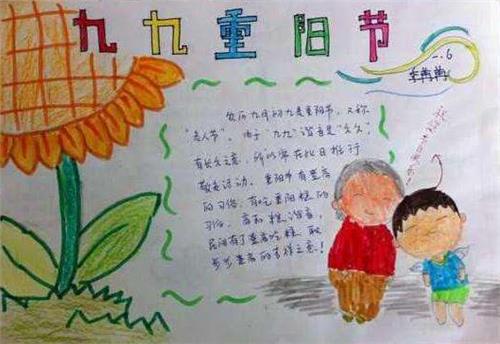 九九重阳节
二.6
农历九月初九是重阳节,又称
"老人节"。由于"九九"谐音是"久久",
有长久之意,所以常在此日推行
敬老活动。重阳节有登高
的习俗,有吃重阳糕的
习俗,高和糕谐音,
民间有了登高吃糕,取
步步登高的吉祥之意!